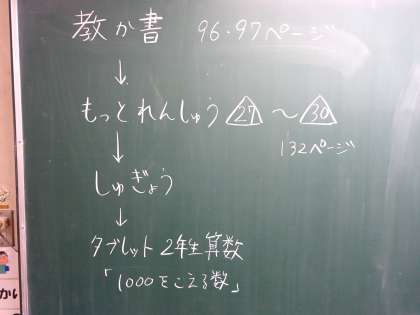 教か書 96・97ページ
↓
もっとれんしゅう 27 〜 30
132ページ
↓
しゅぎょう
↓
タブレット 2年生算数
「1000をこえる数」
かい